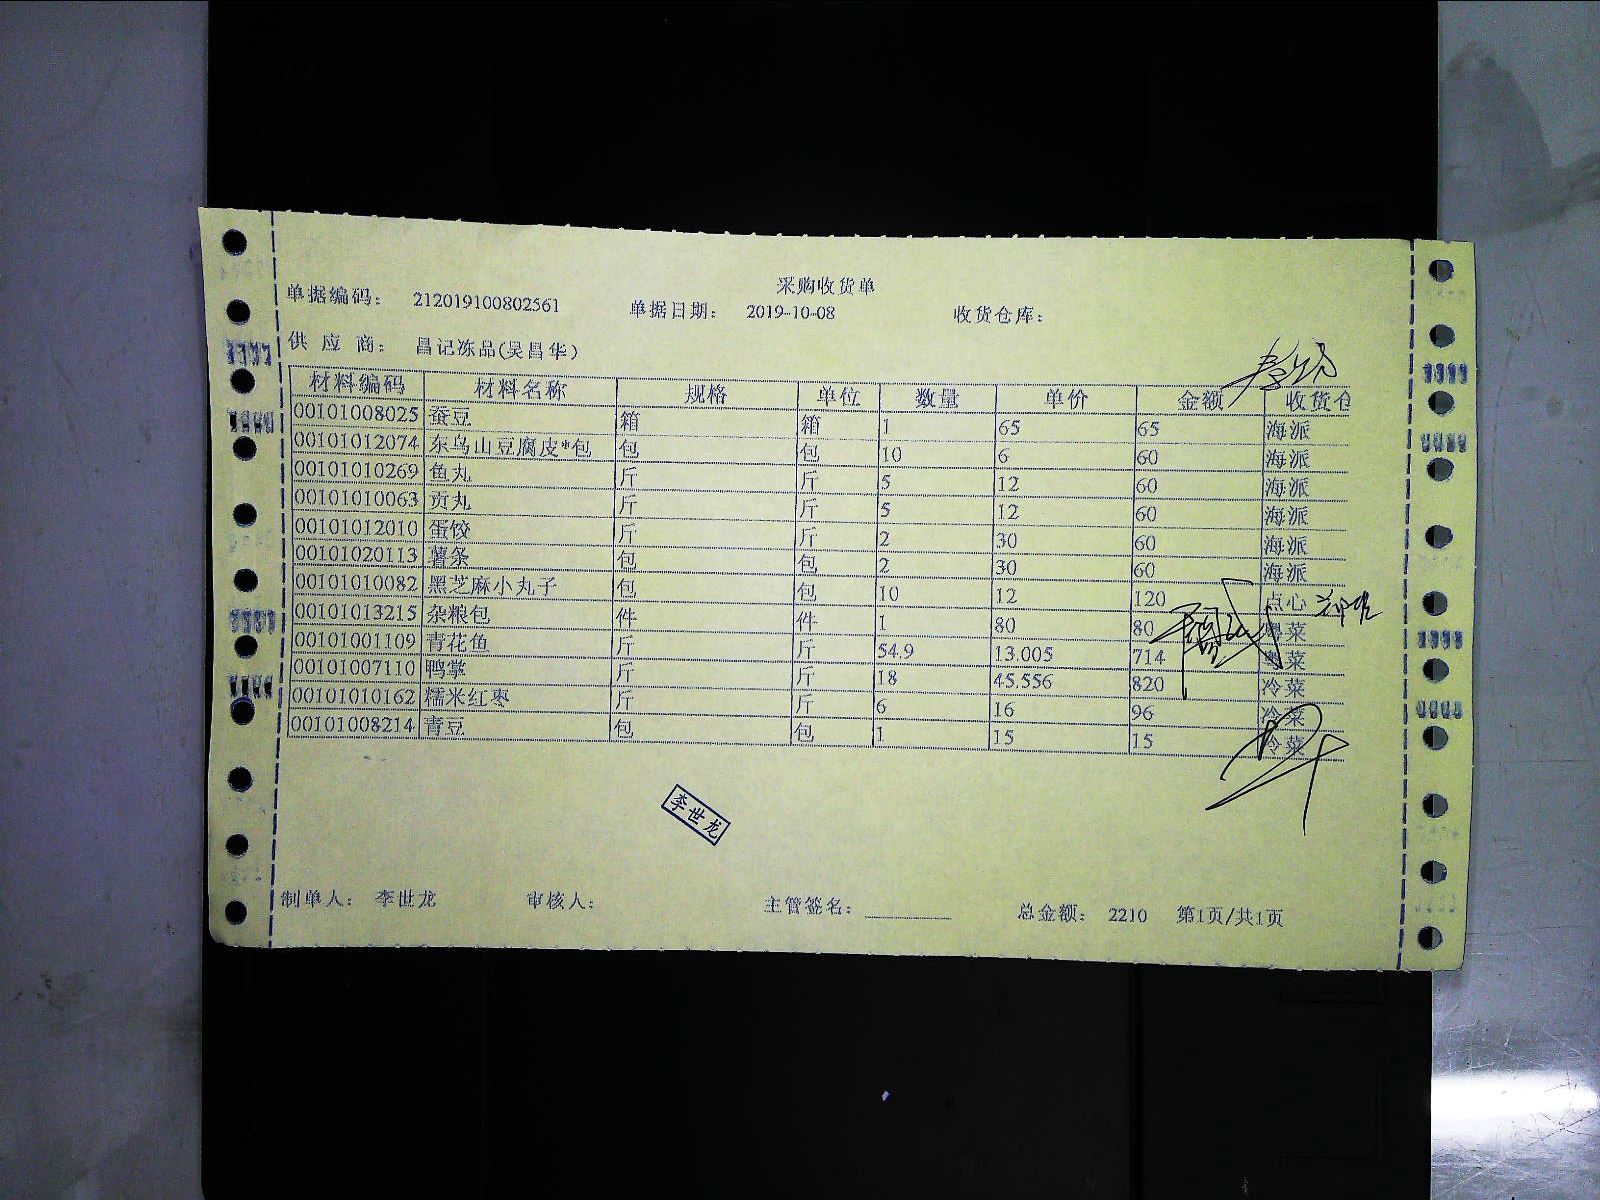 采购收货单
单据编码： 212019100802561 单据日期： 2019-10-08 收货仓库：
供 应 商： 昌记冻品(吴昌华)
材料编码 材料名称 规格 单位 数量 单价 金额 收货仓
00101008025 蚕豆 箱 箱 1 65 65 海派
00101012074 东乌山豆腐皮*包 包 包 10 6 60 海派
00101010269 鱼丸 斤 斤 5 12 60 海派
00101010063 贡丸 斤 斤 5 12 60 海派
00101012010 蛋饺 斤 斤 2 30 60 海派
00101020113 薯条 包 包 2 30 60 海派
00101010082 黑芝麻小丸子 包 包 10 12 120 点心
00101013215 杂粮包 件 件 1 80 80 粤菜
00101001109 青花鱼 斤 斤 54.9 13.005 714 粤菜
00101007110 鸭掌 斤 斤 18 45.556 820 冷菜
00101010162 糯米红枣 斤 斤 6 16 96 冷菜
00101008214 青豆 包 包 1 15 15 冷菜
李世龙
制单人： 李世龙 审核人： 主管签名： 总金额： 2210 第1页/共1页